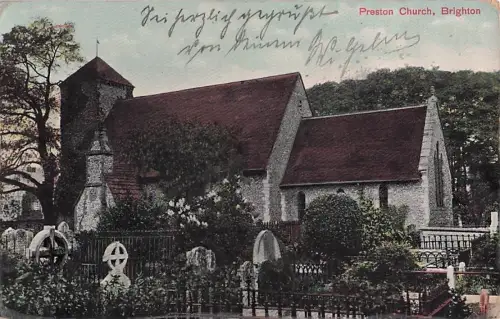 Preston Church, Brighton
Sei herzlich gegrüßt
von deinem